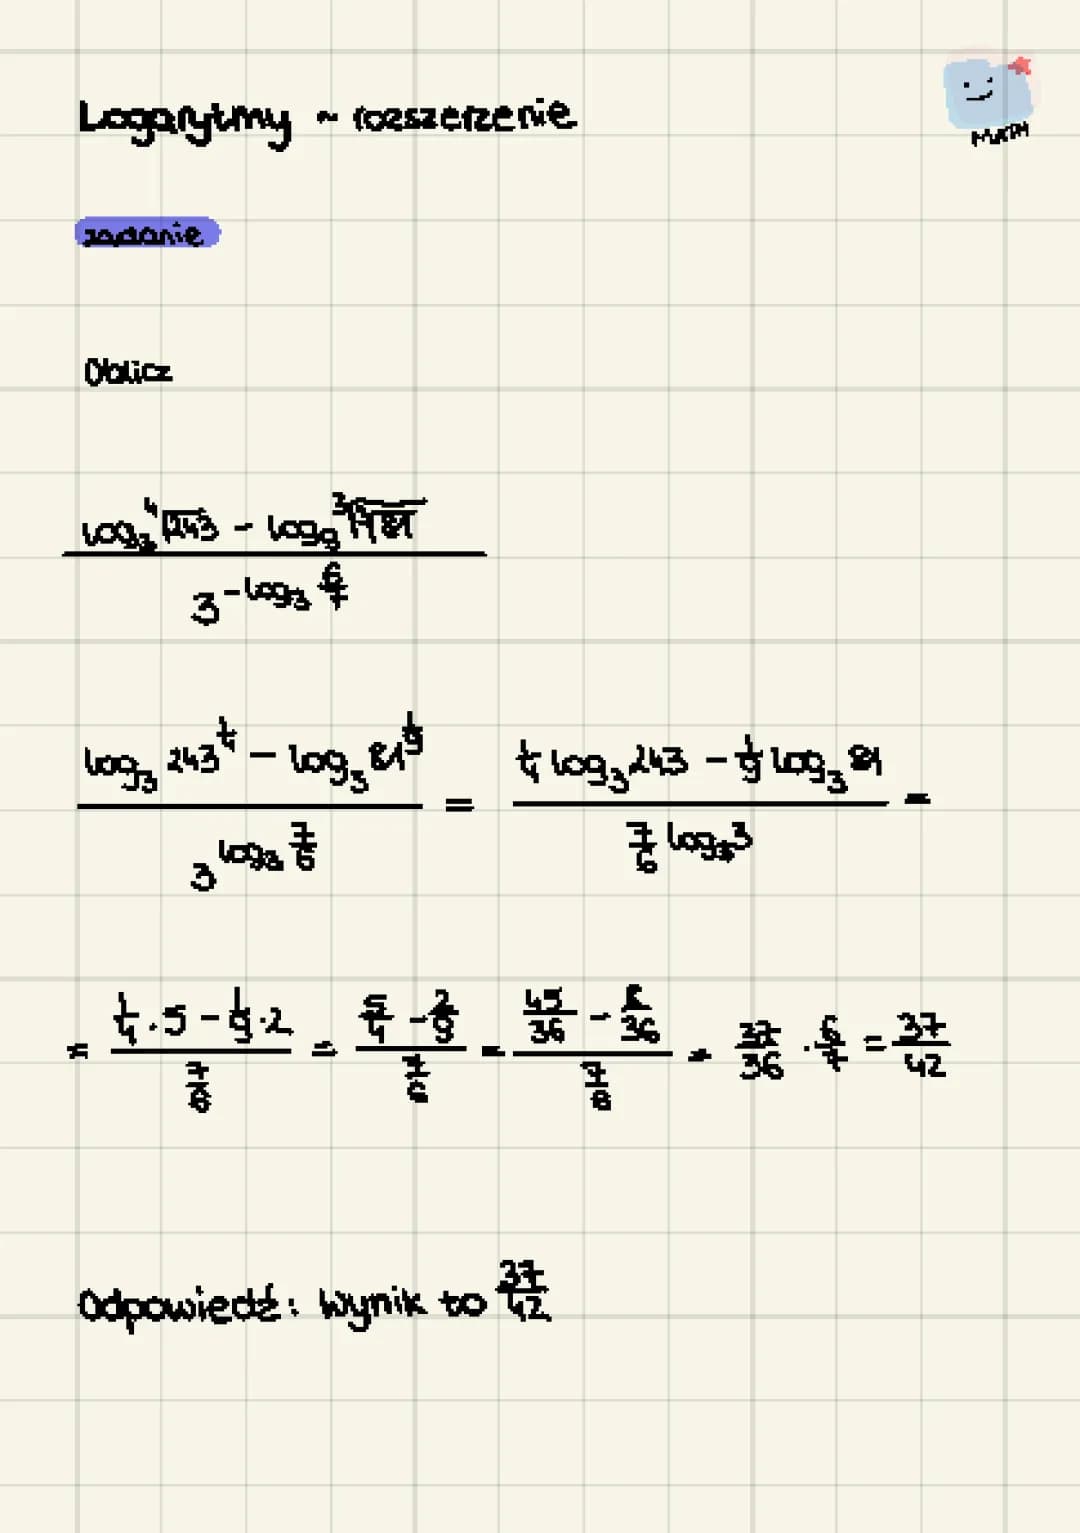 Logarytmy ~ rozszerzenie
MATH
zadanie
Oblicz
log₃ ⁴√243 - log₉ ³√∛81
3^(-log₃ 6/7)
log₃ 243^(1/4) - log₃ 81^(1/9) = 1/4 log₃ 243 - 1/9 log₃ 81 =
3^(log₃ 7/6) 7/6 log₃ 3
= 1/4 · 5 - 1/9 · 2 = 5/4 - 2/9 = 45/36 - 8/36 = 37/36 · 6/7 = 37/42
7/6 7/6 7/6
Odpowiedź: Wynik to 37/42